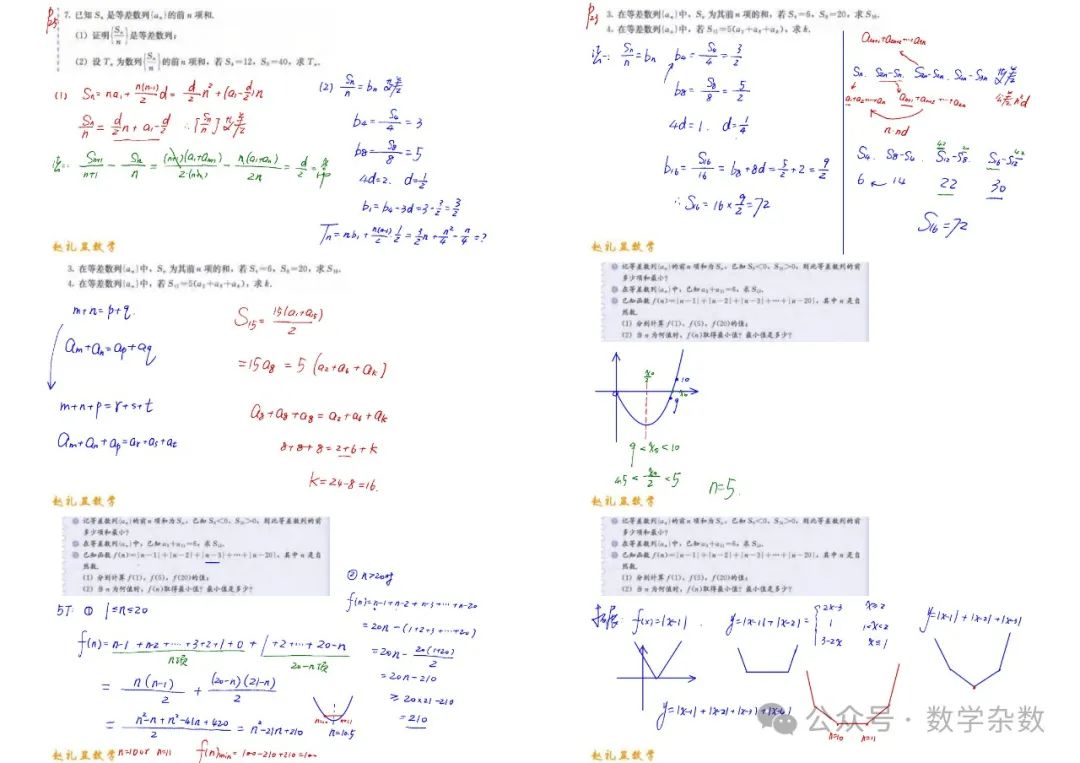 P25
7. 已知 Sₙ 是等差数列{aₙ}的前 n 项和.
(1) 证明{Sₙ/n}是等差数列;
(2) 设 Tₙ 为数列{Sₙ/n}的前 n 项和, 若 S₄=12, S₈=40, 求 Tₙ.
(1) Sₙ=na₁+n(n-1)/2 d=d/2 n²+(a₁-d/2)n
Sₙ/n=d/2 n+a₁-d/2 ∴{Sₙ/n}
Sₙ₊₁/(n+1) - Sₙ/n = (n+1)(a₁+aₙ₊₁)/2(n+1) - n(a₁+aₙ)/2n = d/2
(2) Sₙ/n=bₙ
b₄=S₄/4=3
b₈=S₈/8=5
4d=2. d=1/2
b₁=b₄-3d=3-3/2=3/2
Tₙ=nb₁+n(n-1)/2·1/2=3/2n+n²/4-n/4=?
赵礼显数学
3. 在等差数列{aₙ}中, Sₙ 为其前 n 项的和, 若 S₄=6, S₈=20, 求 S₁₆.
4. 在等差数列{aₙ}中, 若 S₁₅=5(a₂+a₆+aₖ), 求 k.
m+n=p+q.
aₘ+aₙ=aₚ+a_q
m+n+p=r+s+t
aₘ+aₙ+aₚ=aᵣ+aₛ+aₜ
S₁₅=15(a₁+a₁₅)/2
=15a₈=5(a₂+a₆+aₖ)
a₈+a₈+a₈=a₂+a₆+aₖ
8+8+8=2+6+k
k=24-8=16.
赵礼显数学
记等差数列{aₙ}的前 n 项和为Sₙ, 已知 S₉<0, S₁₀>0, 则此等差数列的前
多少项和最小?
已知函数 f(n)=|n-1|+|n-2|+|n-3|+⋯+|n-20|, 其中 n 是自
然数.
(1) 分别计算 f(1), f(5), f(20)的值;
(2) 当 n 为何值时, f(n)取得最小值? 最小值是多少?
5T. ① 1≤n≤20
f(n)=n-1+n-2+⋯+3+2+1+0+1+2+⋯+20-n
n项
20-n项
=n(n-1)/2+(20-n)(21-n)/2
=(n²-n+n²-41n+420)/2=n²-21n+210
n=10.5
n=10or n=11 f(n)min=100-210+210=100
② n>20时
f(n)=n-1+n-2+n-3+⋯+n-20
=20n-(1+2+3+⋯+20)
=20n-20(1+20)/2
=20n-210
≥20×21-210
=210
赵礼显数学
3. 在等差数列{aₙ}中, Sₙ 为其前 n 项的和, 若 S₄=6, S₈=20, 求 S₁₆.
4. 在等差数列{aₙ}中, 若 S₁₅=5(a₂+a₆+aₖ), 求 k.
法一: Sₙ/n=bₙ b₄=S₄/4=3/2
b₈=S₈/8=5/2
4d=1. d=1/4
b₁₆=S₁₆/16=b₈+8d=5/2+2=9/2
∴S₁₆=16×9/2=72
Sₙ. S₂ₙ-Sₙ. S₃ₙ-S₂ₙ. S₄ₙ-S₃ₙ
n·nd
S₄. S₈-S₄. S₁₂-S₈. S₁₆-S₁₂
6 14 22 30
S₁₆=72
赵礼显数学
记等差数列{aₙ}的前 n 项和为Sₙ, 已知 S₉<0, S₁₀>0, 则此等差数列的前
多少项和最小?
已知函数 f(n)=|n-1|+|n-2|+|n-3|+⋯+|n-20|, 其中 n 是自
然数.
(1) 分别计算 f(1), f(5), f(20)的值;
(2) 当 n 为何值时, f(n)取得最小值? 最小值是多少?
9<x₀<10
4.5<x₀/2<5
n=5.
赵礼显数学
记等差数列{aₙ}的前 n 项和为Sₙ, 已知 S₉<0, S₁₀>0, 则此等差数列的前
多少项和最小?
已知函数 f(n)=|n-1|+|n-2|+|n-3|+⋯+|n-20|, 其中 n 是自
然数.
(1) 分别计算 f(1), f(5), f(20)的值;
(2) 当 n 为何值时, f(n)取得最小值? 最小值是多少?
拓展: f(x)=|x-1|. y=|x-1|+|x-2|={2x-3 x≥2
1 1<x<2
3-2x x≤1
y=|x-1|+|x-2|+|x-3|
y=|x-1|+|x-2|+|x-3|+|x-4|
n=10 n=11
赵礼显数学
公众号·数学杂数